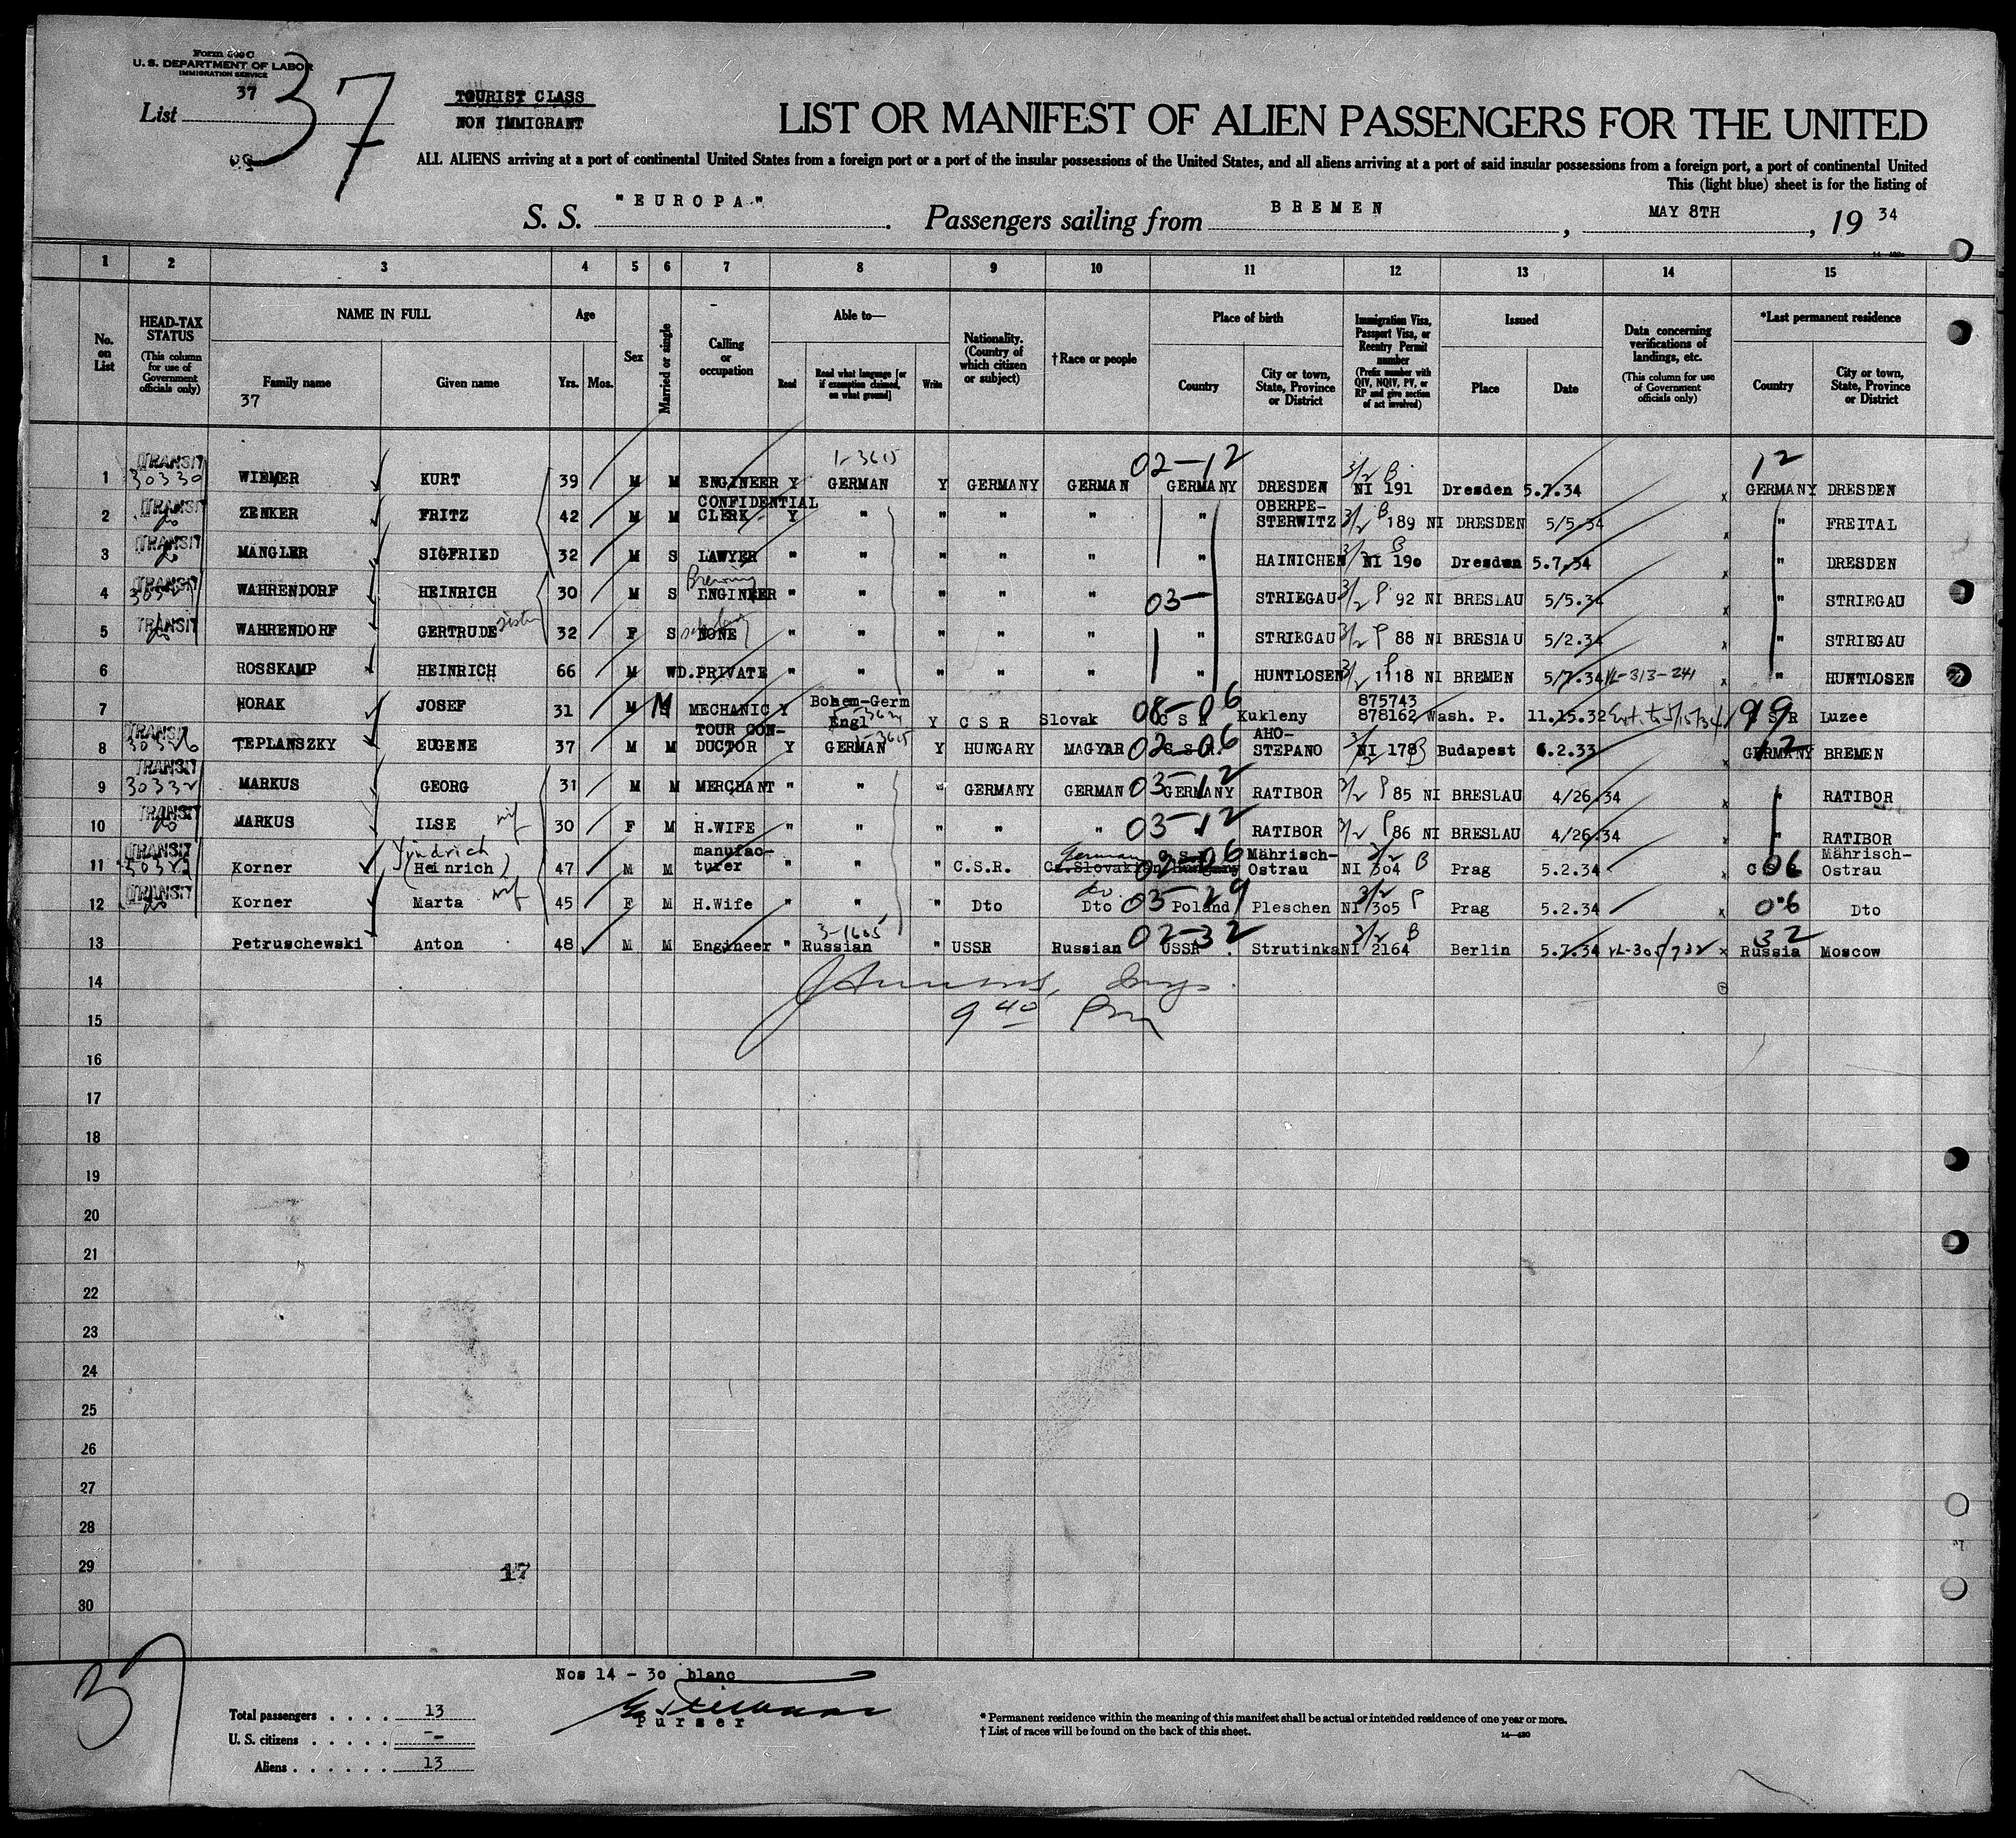 Form 500 C
U. S. DEPARTMENT OF LABOR
IMMIGRATION SERVICE
List 37
37
TOURIST CLASS
NON IMMIGRANT
LIST OR MANIFEST OF ALIEN PASSENGERS FOR THE UNITED
ALL ALIENS arriving at a port of continental United States from a foreign port or a port of the insular possessions of the United States, and all aliens arriving at a port of said insular possessions from a foreign port, a port of continental United
This (light blue) sheet is for the listing of
S. S. "EUROPA". Passengers sailing from BREMEN, MAY 8TH, 19 34
1 2 3 4 5 6 7 8 9 10 11 12 13 14 15
No. on List
HEAD-TAX STATUS (This column for use of Government officials only)
NAME IN FULL
Family name
37
Given name
Age
Yrs. Mos.
Sex
Married or single
Calling or occupation
Able to—
Read
Read what language [or if exemption claimed, on what ground]
Write
Nationality. (Country of which citizen or subject)
†Race or people
Place of birth
Country
City or town, State, Province or District
Immigration Visa, Passport Visa, or Reentry Permit number (Prefix number with QIV, NQIV, PV, or RP and give section of act involved)
Issued
Place
Date
Data concerning verifications of landings, etc. (This column for use of Government officials only)
*Last permanent residence
Country
City or town, State, Province or District
1 TRANSIT 30330 WIEMER KURT 39 M M ENGINEER Y 1-3615 GERMAN Y GERMANY GERMAN 02-12 GERMANY DRESDEN 3/2 B NI 191 Dresden 5.7.34 x 12 GERMANY DRESDEN
2 TRANSIT do ZENKER FRITZ 42 M M CONFIDENTIAL CLERK Y " " " " " OBERPE-STERWITZ 3/2 B 189 NI DRESDEN 5/5.34 x " FREITAL
3 TRANSIT do MANGLER SIGFRIED 32 M S LAWYER " " " " " " HAINICHEN 3/2 B NI 190 Dresden 5.7.34 x " DRESDEN
4 TRANSIT WAHRENDORF HEINRICH 30 M S Brewing ENGINEER " " " " " 03- STRIEGAU 3/2 P 92 NI BRESLAU 5/5.34 x " STRIEGAU
5 TRANSIT do WAHRENDORF GERTRUDE sister 32 F S NONE " " " " " " STRIEGAU 3/2 P 88 NI BRESLAU 5/2.34 x " STRIEGAU
6 ROSSKAMP HEINRICH 66 M WD. PRIVATE " " " " " " HUNTLOSEN 3/2 P 1118 NI BREMEN 5/7.34 VL-313-241 x " HUNTLOSEN
7 HORAK JOSEF 31 M M MECHANIC Y Bohem-Germ Engl Y C S R Slovak 08-06 C S R Kukleny 875743 878162 Wash. P. 11.15.32 99 C S R Luzee
8 TRANSIT TEPLANSZKY EUGENE 37 M M TOUR CON-DUCTOR Y 1-3615 GERMAN Y HUNGARY MAGYAR 02-06 C.S.R. AHO-STEPANO 3/2 NI 178 B Budapest 6.2.33 x 12 GERMANY BREMEN
9 TRANSIT 30332 MARKUS GEORG 31 M M MERCHANT " " " GERMANY GERMAN 03-12 GERMANY RATIBOR 3/2 P 85 NI BRESLAU 4/26/34 x " RATIBOR
10 TRANSIT do MARKUS ILSE wf 30 F M H.WIFE " " " " " 03-12 " RATIBOR 3/2 P 86 NI BRESLAU 4/26.34 x " RATIBOR
11 TRANSIT Korner Jyndrich (Heinrich) 47 M M manufac-turer " " " C.S.R. German Cz.Slovakian Hungary 06 Mährisch-Ostrau 3/2 NI 304 B Prag 5.2.34 x 06 Mährisch-Ostrau
12 TRANSIT do Korner Marta wf 45 F M H.Wife " " " Dto do Dto 03-29 Poland Pleschen 3/2 NI 305 P Prag 5.2.34 x 06 Dto
13 Petruschewski Anton 48 M M Engineer " 3-1605 Russian " USSR Russian 02-32 USSR Strutinka 3/2 B NI 2164 Berlin 5.7.34 VL-305/732 x 32 Russia Moscow
14
9 40 Pm
15
16
17
18
19
20
21
22
23
24
25
26
27
28
29 17
30
37
Nos 14 - 30 blanc
Purser
Total passengers . . . . 13
U. S. citizens . . . . . -
Aliens . . . . . . 13
* Permanent residence within the meaning of this manifest shall be actual or intended residence of one year or more.
† List of races will be found on the back of this sheet.
14—430